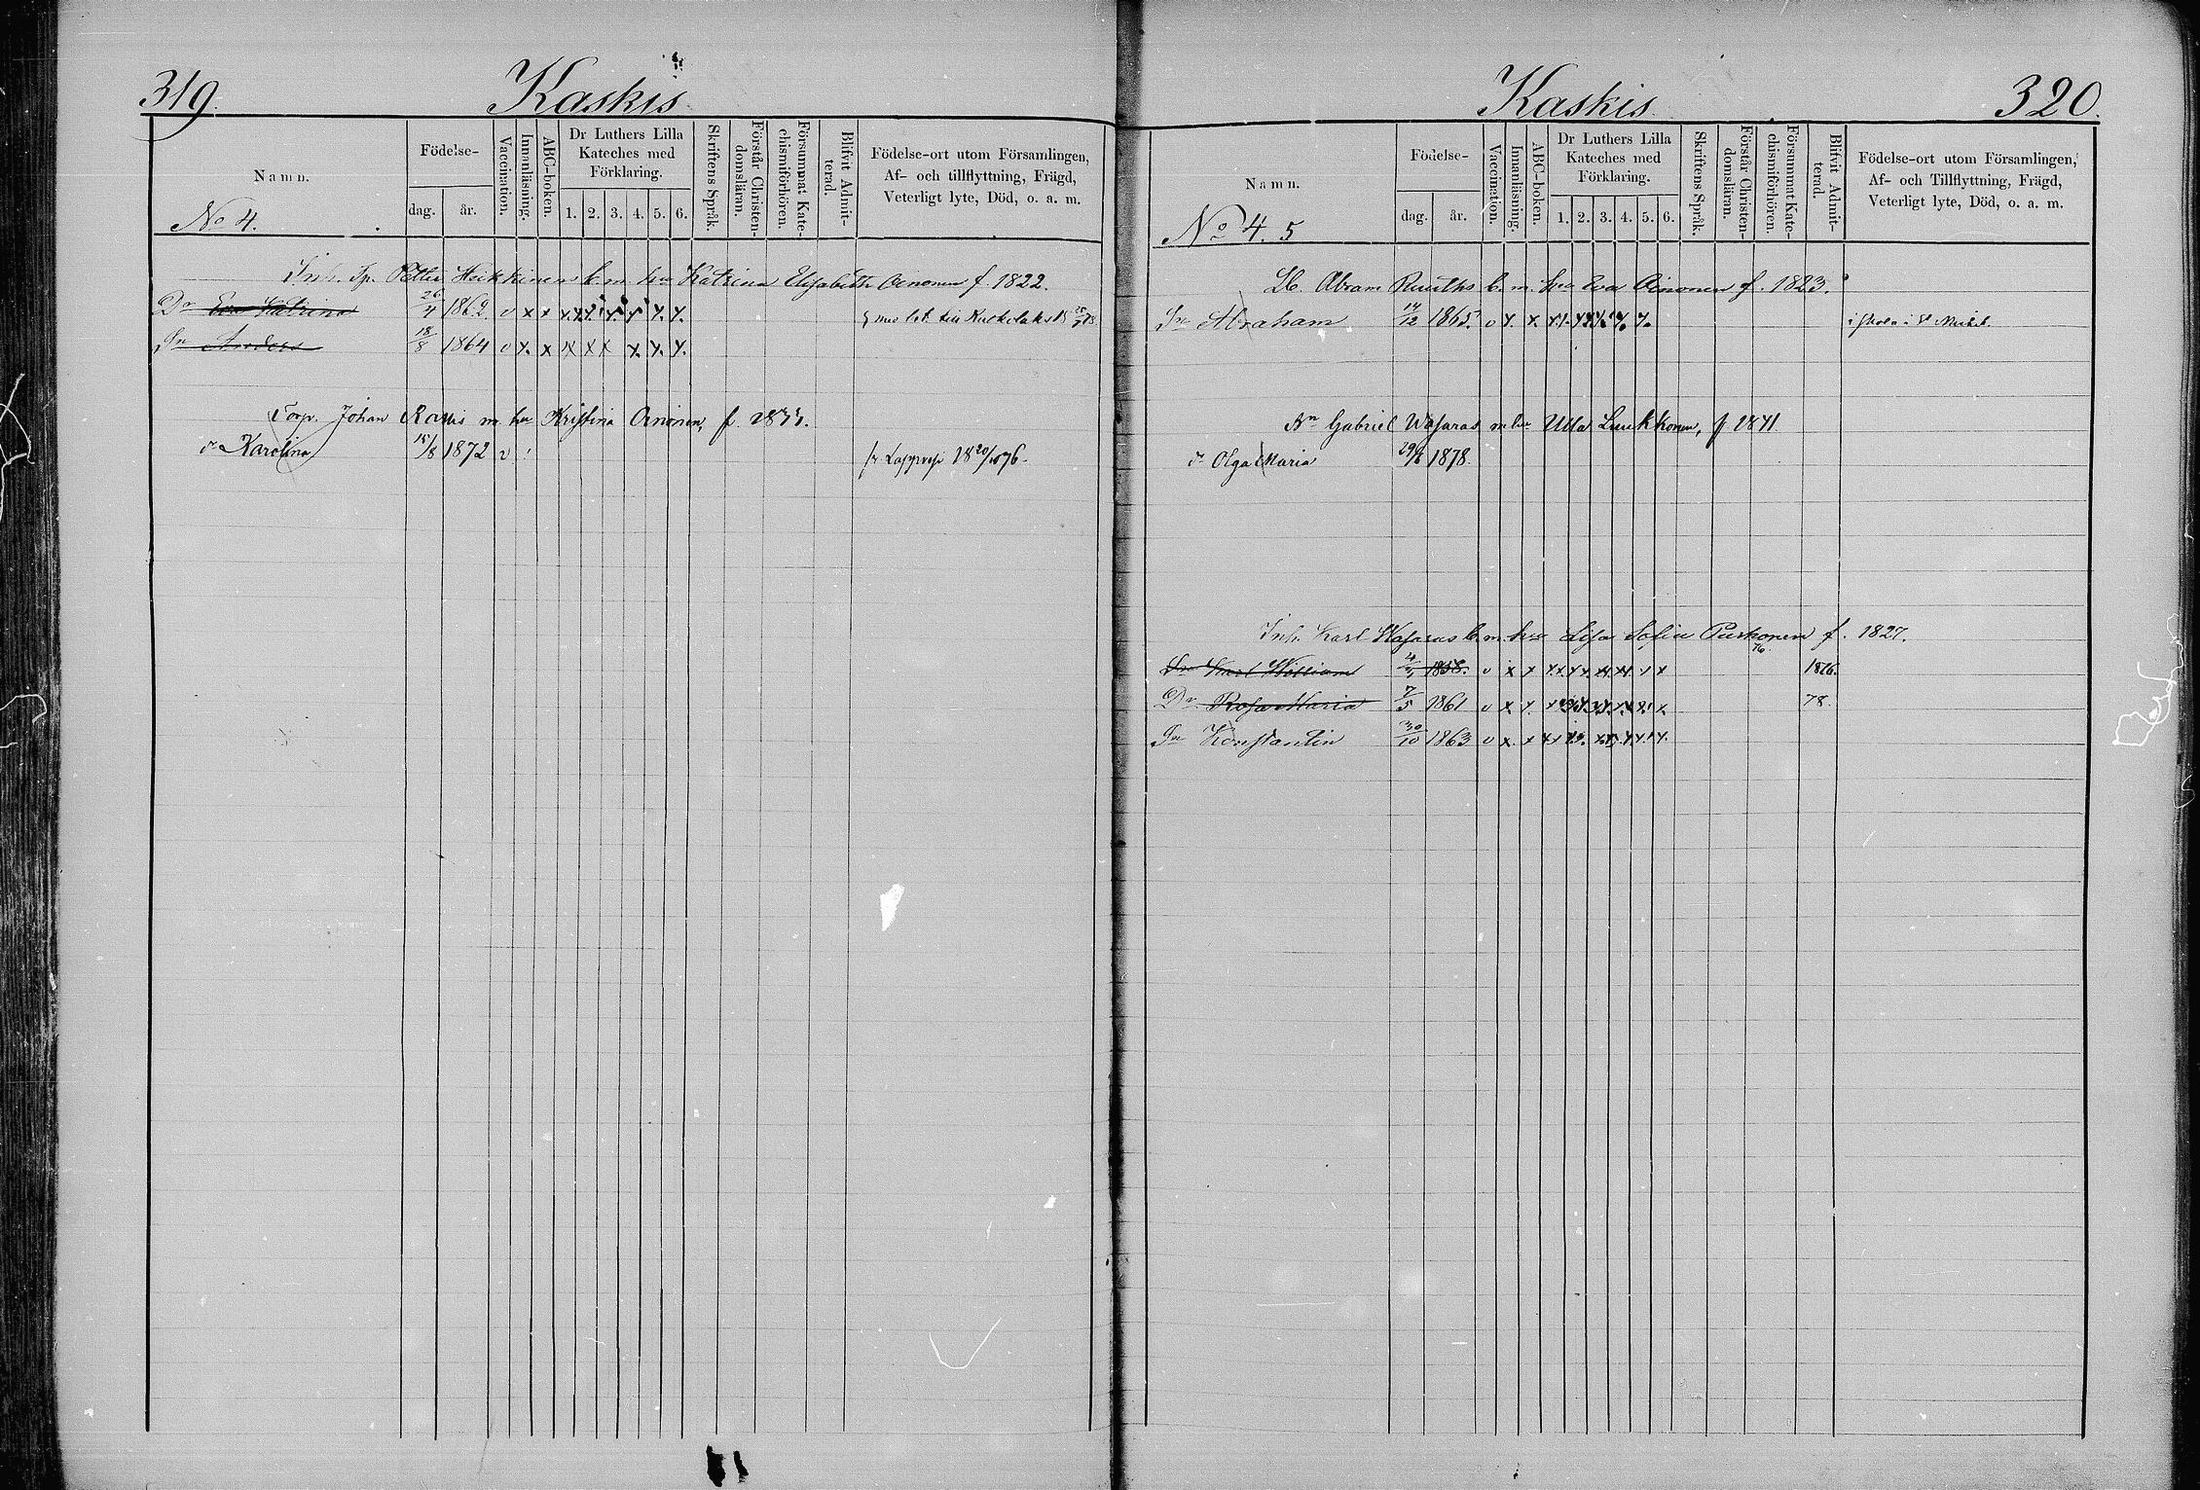 319.
Kaskis
Namn.
Födelse-
dag.
år.
Vaccination.
Innanläsning.
ABC-boken.
Dr Luthers Lilla
Kateches med
Förklaring.
1. 2. 3. 4. 5. 6.
Skriftens Språk.
Förstår Christen-
domsläran.
Försummat Kate-
chismiförhören.
Blifvit Admit-
terad.
Födelse-ort utom Församlingen,
Af- och tillflyttning, Frägd,
Veterligt lyte, Död, o. a. m.
No 4.
Inh. Petter Heikkinens b. m. hu Katrina Elisabeth Oinonen f. 1822.
Dr Eva Katrina 26/4 1862. v x x x x x x x x x
Sn Anders 18/8 1864 v x x x x x x x x
Torp. Johan m. hu Kristina Oinonen, f.
dr Karolina 15/8 1872 v
fr Lappvesi 18 20/10 76.
Kaskis.
320.
Namn.
Födelse-
dag.
år.
Vaccination.
Innanläsning.
ABC-boken.
Dr Luthers Lilla
Kateches med
Förklaring.
1. 2. 3. 4. 5. 6.
Skriftens Språk.
Förstår Christen-
domsläran.
Försummat Kate-
chismiförhören.
Blifvit Admit-
terad.
Födelse-ort utom Församlingen,
Af- och Tillflyttning, Frägd,
Veterligt lyte, Död, o. a. m.
No 4. 5
Abram Ruuths b. m. hu Eva Oinonen f. 1823.
Sn Abraham 14/12 1865. v x. x. i skola i St Michel.
Gabriel Wasaras m hu Ulla Luukkonen, f 1841
dr Olga Maria 1878.
Inh. Karl Wasaras b. m. hu Lisa Sofia Purhonen f. 1827.
Sn Karl William 1858. v x x 1876.
Dr Rosa Maria 7/5 1861 v x. x. 78.
Sn Konstantin 30/10 1863 v x. x